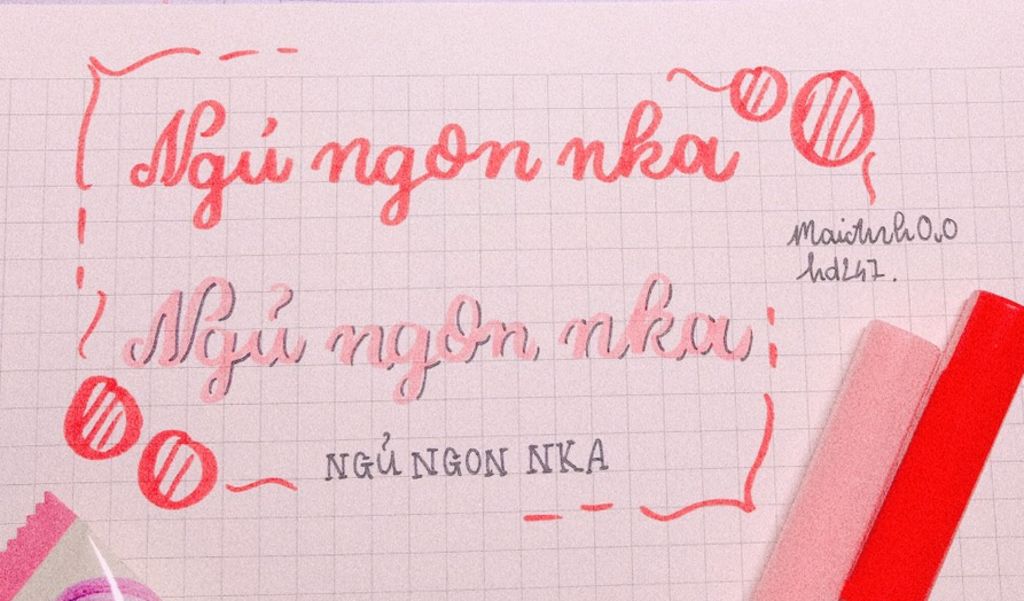 Ngủ ngon nka
Maichnh0.0
hd247.
Ngủ ngon nka
NGỦ NGON NKA